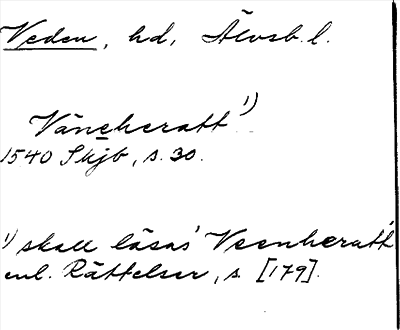 Veden, hd, Älvsb. l.
Väneheratt 1)
1540 Skjb, s. 30.
1) skall läsas 'Veenheratt'
enl. Rättelser, s. [179].